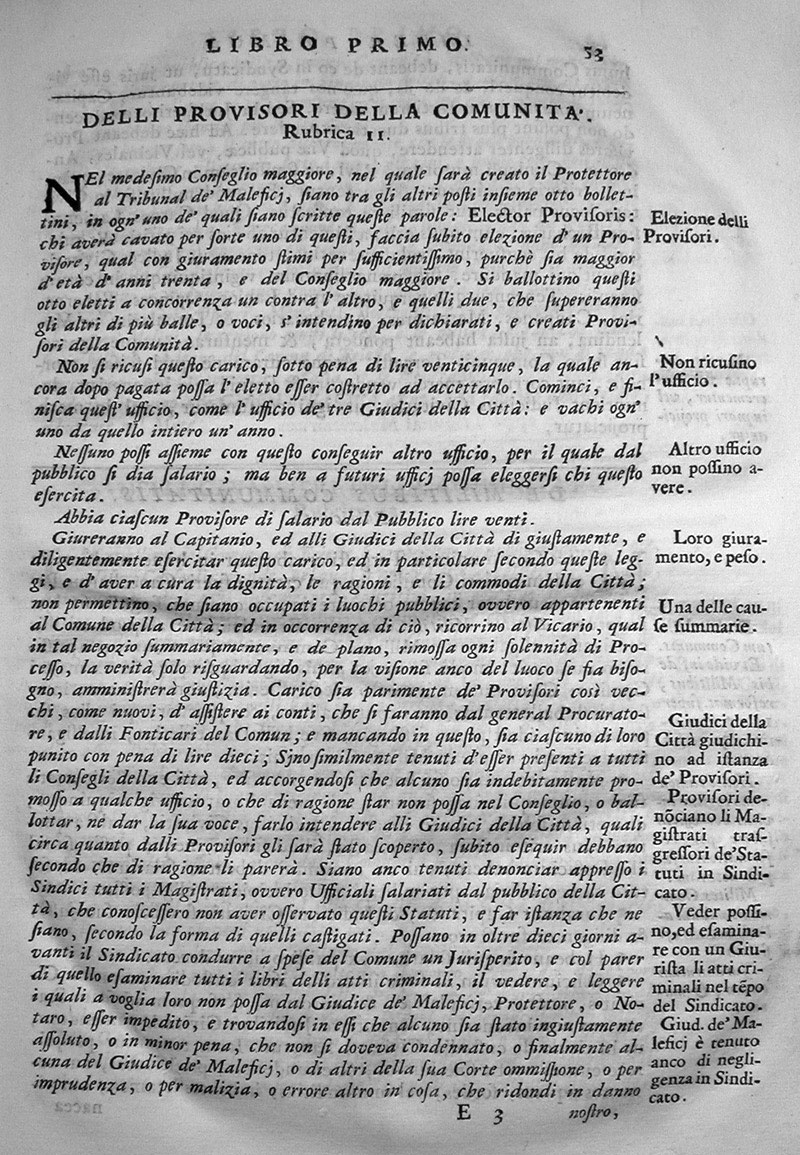 LIBRO PRIMO.
53
DELLI PROVISORI DELLA COMUNITA'.
Rubrica II.
NEl medeſimo Conſeglio maggiore, nel quale ſarà creato il Protettore
al Tribunal de' Maleficj, ſiano tra gli altri poſti inſieme otto bollet-
tini, in ogn' uno de' quali ſiano ſcritte queſte parole: Elector Proviſoris:
chi averà cavato per ſorte uno di queſti, faccia ſubito elezione d' un Pro-
viſore, qual con giuramento ſtimi per ſufficientiſſimo, purchè ſia maggior
d' età d' anni trenta, e del Conſeglio maggiore. Si ballottino queſti
otto eletti a concorrenza un contra l' altro, e quelli due, che ſupereranno
gli altri di più balle, o voci, s' intendino per dichiarati, e creati Provi-
ſori della Comunità.
Non ſi ricuſi queſto carico, ſotto pena di lire venticinque, la quale an-
cora dopo pagata poſſa l' eletto eſſer coſtretto ad accettarlo. Cominci, e fi-
niſca queſt' ufficio, come l' ufficio de' tre Giudici della Città: e vachi ogn'
uno da quello intiero un' anno.
Neſſuno poſſi aſſieme con queſto conſeguir altro ufficio, per il quale dal
pubblico ſi dia ſalario; ma ben a futuri ufficj poſſa eleggerſi chi queſto
eſercita.
Abbia ciaſcun Proviſore di ſalario dal Pubblico lire venti.
Giureranno al Capitanio, ed alli Giudici della Città di giuſtamente, e
diligentemente eſercitar queſto carico, ed in particolare ſecondo queſte leg-
gi, e d' aver a cura la dignità, le ragioni, e li commodi della Città;
non permettino, che ſiano occupati i luochi pubblici, ovvero appartenenti
al Comune della Città; ed in occorrenza di ciò, ricorrino al Vicario, qual
in tal negozio ſummariamente, e de plano, rimoſſa ogni ſolennità di Pro-
ceſſo, la verità ſolo riſguardando, per la viſione anco del luoco ſe fia biſo-
gno, amminiſtrerà giuſtizia. Carico ſia parimente de' Proviſori così vec-
chi, come nuovi, d' aſſiſtere ai conti, che ſi faranno dal general Procurato-
re, e dalli Fonticari del Comun; e mancando in queſto, ſia ciaſcuno di loro
punito con pena di lire dieci; Sjno ſimilmente tenuti d' eſſer preſenti a tutti
li Conſegli della Città, ed accorgendoſi che alcuno ſia indebitamente pro-
moſſo a qualche ufficio, o che di ragione ſtar non poſſa nel Conſeglio, o bal-
lottar, ne dar la ſua voce, farlo intendere alli Giudici della Città, quali
circa quanto dalli Proviſori gli ſarà ſtato ſcoperto, ſubito eſequir debbano
ſecondo che di ragione li parerà. Siano anco tenuti denonciar appreſſo i
Sindici tutti i Magiſtrati, ovvero Ufficiali ſalariati dal pubblico della Cit-
tà, che conoſceſſero non aver oſſervato queſti Statuti, e far iſtanza che ne
ſiano, ſecondo la forma di quelli caſtigati. Poſſano in oltre dieci giorni a-
vanti il Sindicato condurre a ſpeſe del Comune un Juriſperito, e col parer
di quello eſaminare tutti i libri delli atti criminali, il vedere, e leggere
i quali a voglia loro non poſſa dal Giudice de' Maleficj, Protettore, o No-
taro, eſſer impedito, e trovandoſi in eſſi che alcuno ſia ſtato ingiuſtamente
aſſoluto, o in minor pena, che non ſi doveva condennato, o finalmente al-
cuna del Giudice de' Maleficj, o di altri della ſua Corte ommiſſione, o per
imprudenza, o per malizia, o errore altro in coſa, che ridondi in danno
E 3
noſtro,
Elezione delli
Proviſori.
Non ricuſino
l' ufficio.
Altro ufficio
non poſſino a-
vere.
Loro giura-
mento, e peſo.
Una delle cau-
ſe ſummarie.
Giudici della
Città giudichi-
no ad iſtanza
de' Proviſori.
Proviſori de-
nōciano li Ma-
giſtrati traſ-
greſſori de' Sta-
tuti in Sindi-
cato.
Veder poſſi-
no, ed eſamina-
re con un Giu-
riſta li atti cri-
minali nel tēpo
del Sindicato.
Giud. de' Ma-
leficj è tenuto
anco di negli-
genza in Sindi-
cato.